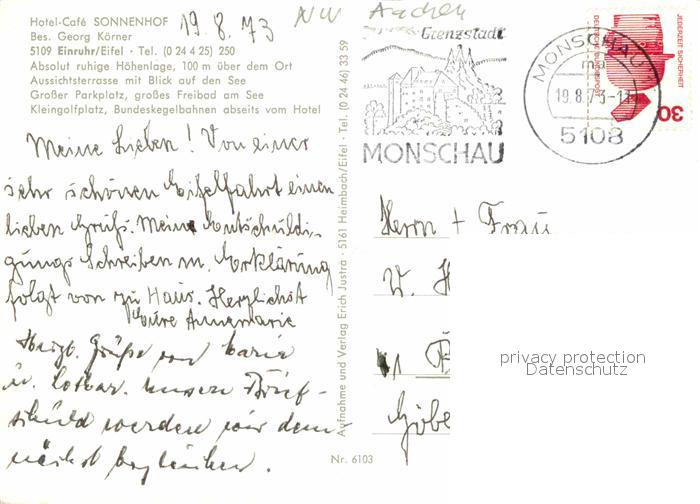 Hotel-Café SONNENHOF
Bes. Georg Körner
5109 Einruhr/Eifel · Tel. (0 24 4 25) 250
Absolut ruhige Höhenlage, 100 m über dem Ort
Aussichtsterrasse mit Blick auf den See
Großer Parkplatz, großes Freibad am See
Kleingolfplatz, Bundeskegelbahnen abseits vom Hotel
19.8.73
NW Aachen
Meine Lieben! Von einer
sehr schönen Eifelfahrt einen
lieben Gruß. Meine Entschuldi-
gungs Schreiben m. Erklärung
folgt von zu Haus. Herzlichst
Eure Annemarie
Herzl. Grüße von Maria
u. Lothar. Unsere Brief-
schuld werden wir dem-
nächst begleichen.
Aufnahme und Verlag Erich Justra · 5161 Heimbach/Eifel · Tel. (0 24 46) 33 59
Nr. 6103
Grenzstadt
MONSCHAU
MONSCHAU
19.8.73-11
5108
JEDERZEIT SICHERHEIT
DEUTSCHE BUNDESPOST
30
Herrn + Frau
W. H
Göbe
privacy protection
Datenschutz